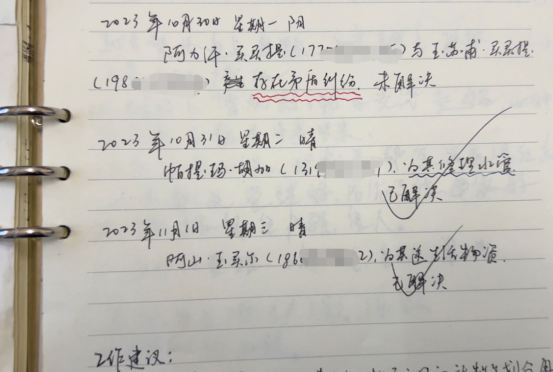 2023年10月30日 星期一 阴
阿力汗·买买提(177 )与玉苏甫·买买提
(198 ) 存在矛盾纠纷. 未解决
2023年10月31日 星期二 晴
帕提玛·胡加(131 1). 为其修理水管
已解决
2023年11月1日 星期三 晴
阿山·玉买尔(186 2). 为其送生活物资.
已解决
工作建议: